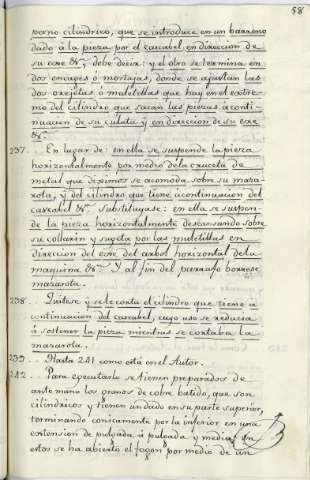 58
perno cilindrico, que se introduce en un barreno
dado á la pieza por el cascabel, en direccion de
su exe &ª; debe decir: y el otro se termina en
dos encages ó mortajas, donde se ajustan las
dos orejetas ó muletillas que hay en el extre-
mo del cilindro que sacan las piezas á conti-
nuacion de su culata y en direccion de su exe
&ª.
237... En lugar de: en ella se suspende la pieza
horizontalmente por medio de la cruceta de
metal que diximos se acomoda sobre su maza-
rota, y del cilindro que tiene á continuacion del
cascabel &ª substituyase: en ella se suspen-
de la pieza horizontalmente descansando sobre
su collarin y sugeta por las muletillas en
direccion del exe del arbol horizontal de la
maquina &ª. Y al fin del parrafo borrese
mazarota.
238... Quitese y se le corta el cilindro que tiene á
continuacion del cascabel, cuyo uso se reducia
á sostener la pieza mientras se cortaba la
mazarota.
239... Hasta 241 como está en el Autor.
242... Para executarlo se tienen preparados de
ante mano los granos de cobre batido, que son
cilindricos y tienen un dado en su parte superior,
terminando conicamente por la inferior en una
extension de pulgada á pulgada y media; en
estos se ha abierto el fogon por medio de un